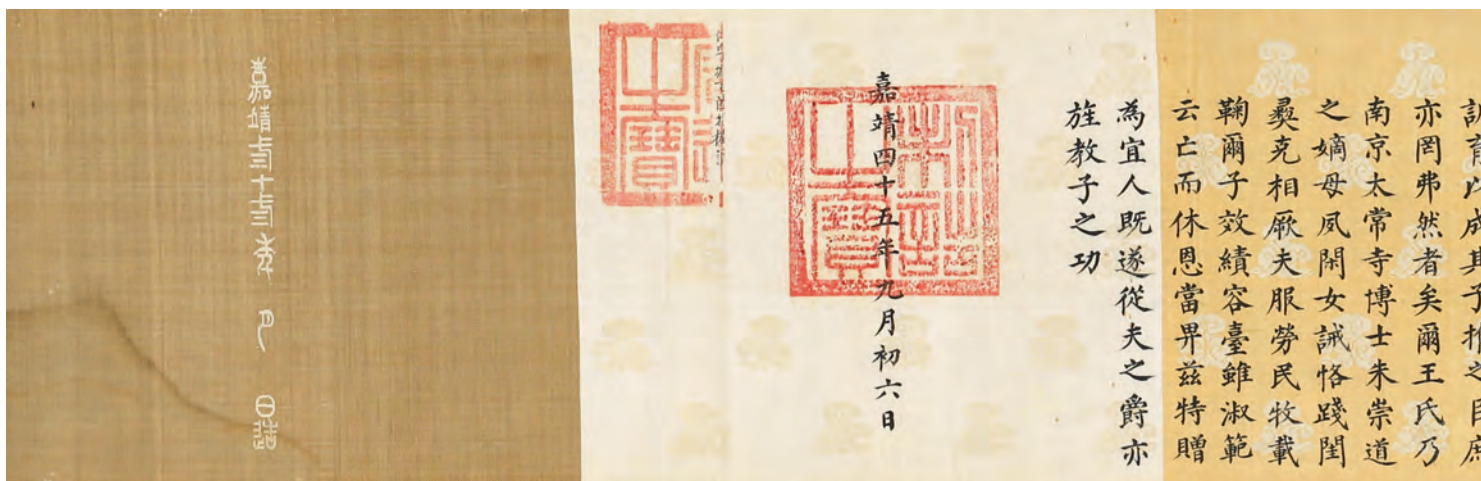 訓育以成其子推之臣庶
亦罔弗然者矣爾王氏乃
南京太常寺博士朱崇道
之嫡母夙閑女誡恪踐閨
彝克相厥夫服勞民牧載
鞠爾子效績容臺雖淑範
云亡而休恩當畀茲特贈
為宜人既遂從夫之爵亦
旌教子之功
嘉靖四十五年九月初六日
制誥之寶
之寶
嘉靖弎十弎年 月 日造